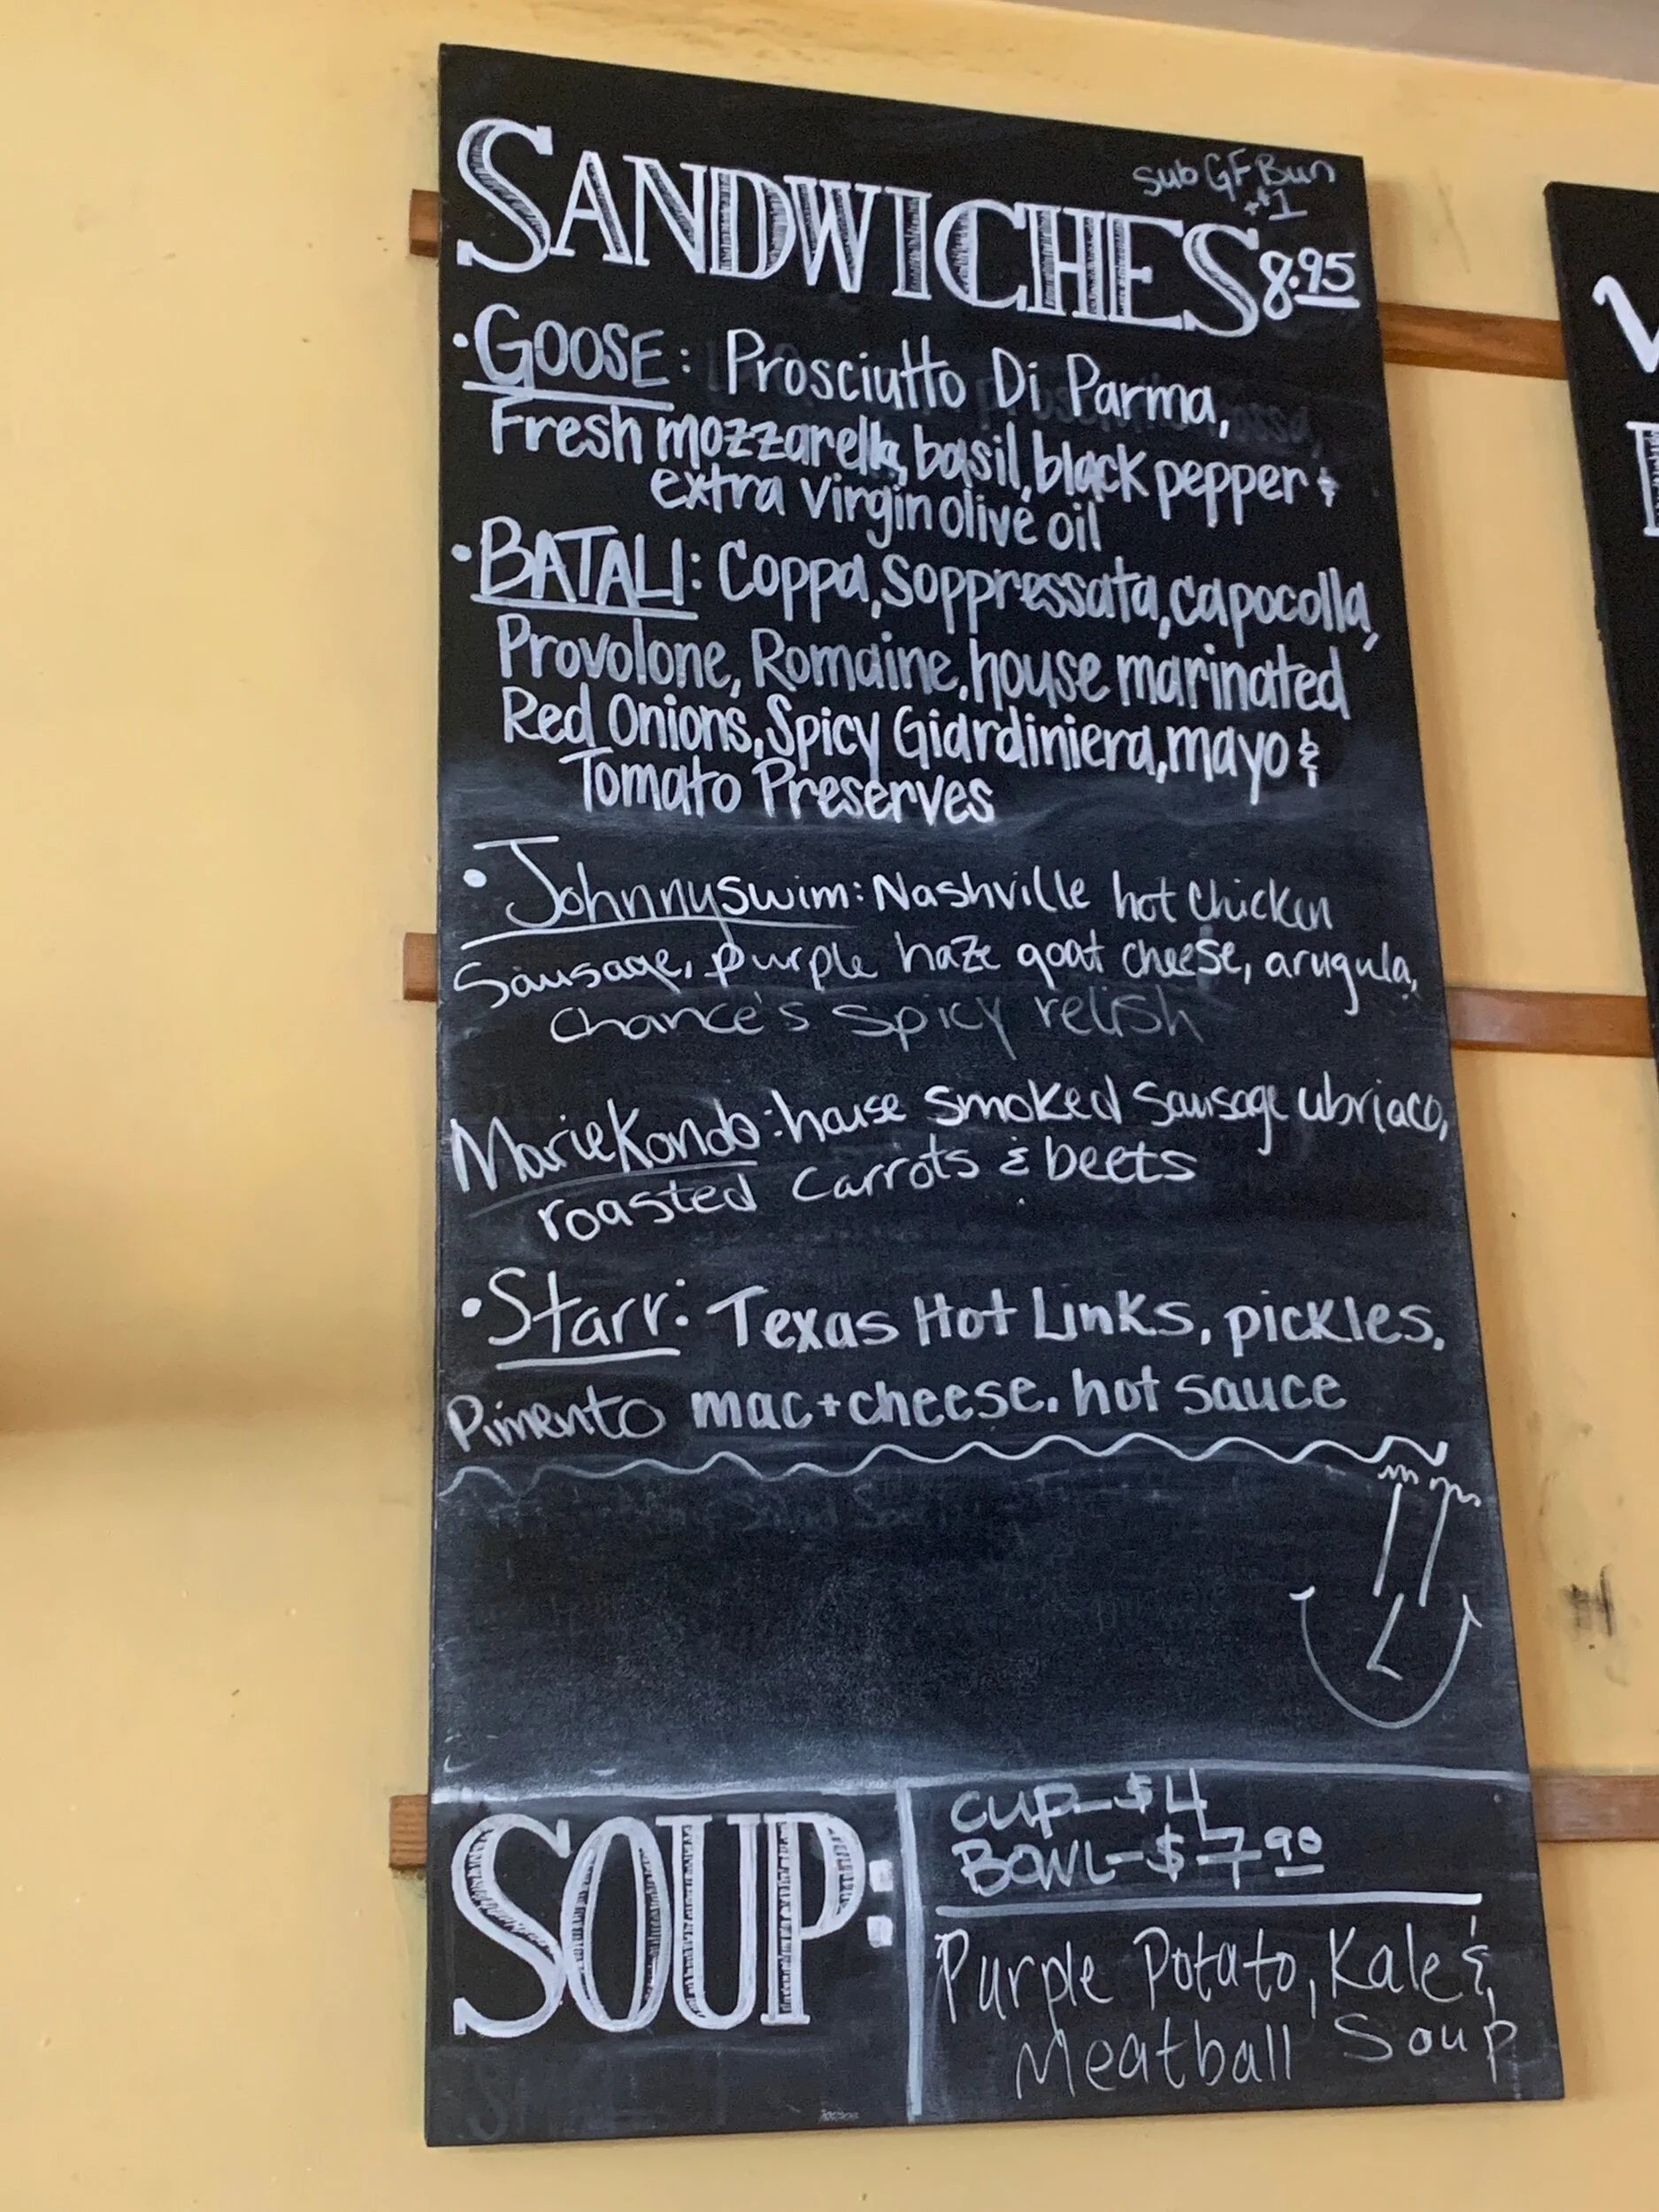 sub GF Bun
+$1
SANDWICHES 8.95
• GOOSE: Prosciutto Di Parma,
Fresh mozzarella, basil, black pepper &
extra virgin olive oil
• BATALI: Coppa, Soppressata, capocolla,
Provolone, Romaine, house marinated
Red Onions, Spicy Giardiniera, mayo &
Tomato Preserves
• Johnnyswim: Nashville hot chicken
Sausage, purple haze goat cheese, arugula,
Chance's spicy relish
MarieKondo: house smoked sausage ubriaco,
roasted carrots & beets
• Starr: Texas Hot Links, pickles,
Pimento mac + cheese, hot sauce
SOUP:
CUP - $4
BOWL - $7.90
Purple Potato, Kale &
Meatball Soup